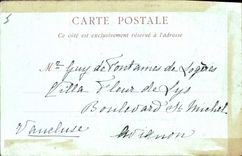 CARTE POSTALE
Ce côté est exclusivement réservé à l'adresse
5
Mr Guy de Fontaines de
Villa Fleur de Lys
Boulevard St Michel
Vaucluse Avignon